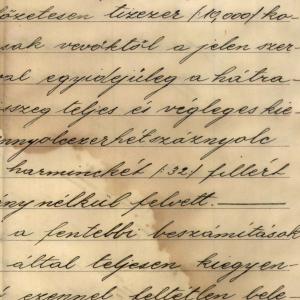 lőzetesen tizezer /10,000/ ko-
sak vevőktől a jelen szer-
val egyidejüleg a hátra-
sszeg teljes és végleges kie-
nnyolcezerhétszáznyolc
harminckét /:32:/ fillért
énynélkül felvett.
a fentebbi beszámitások
által teljesen kiegyen-
s ezennel feltétlen bele